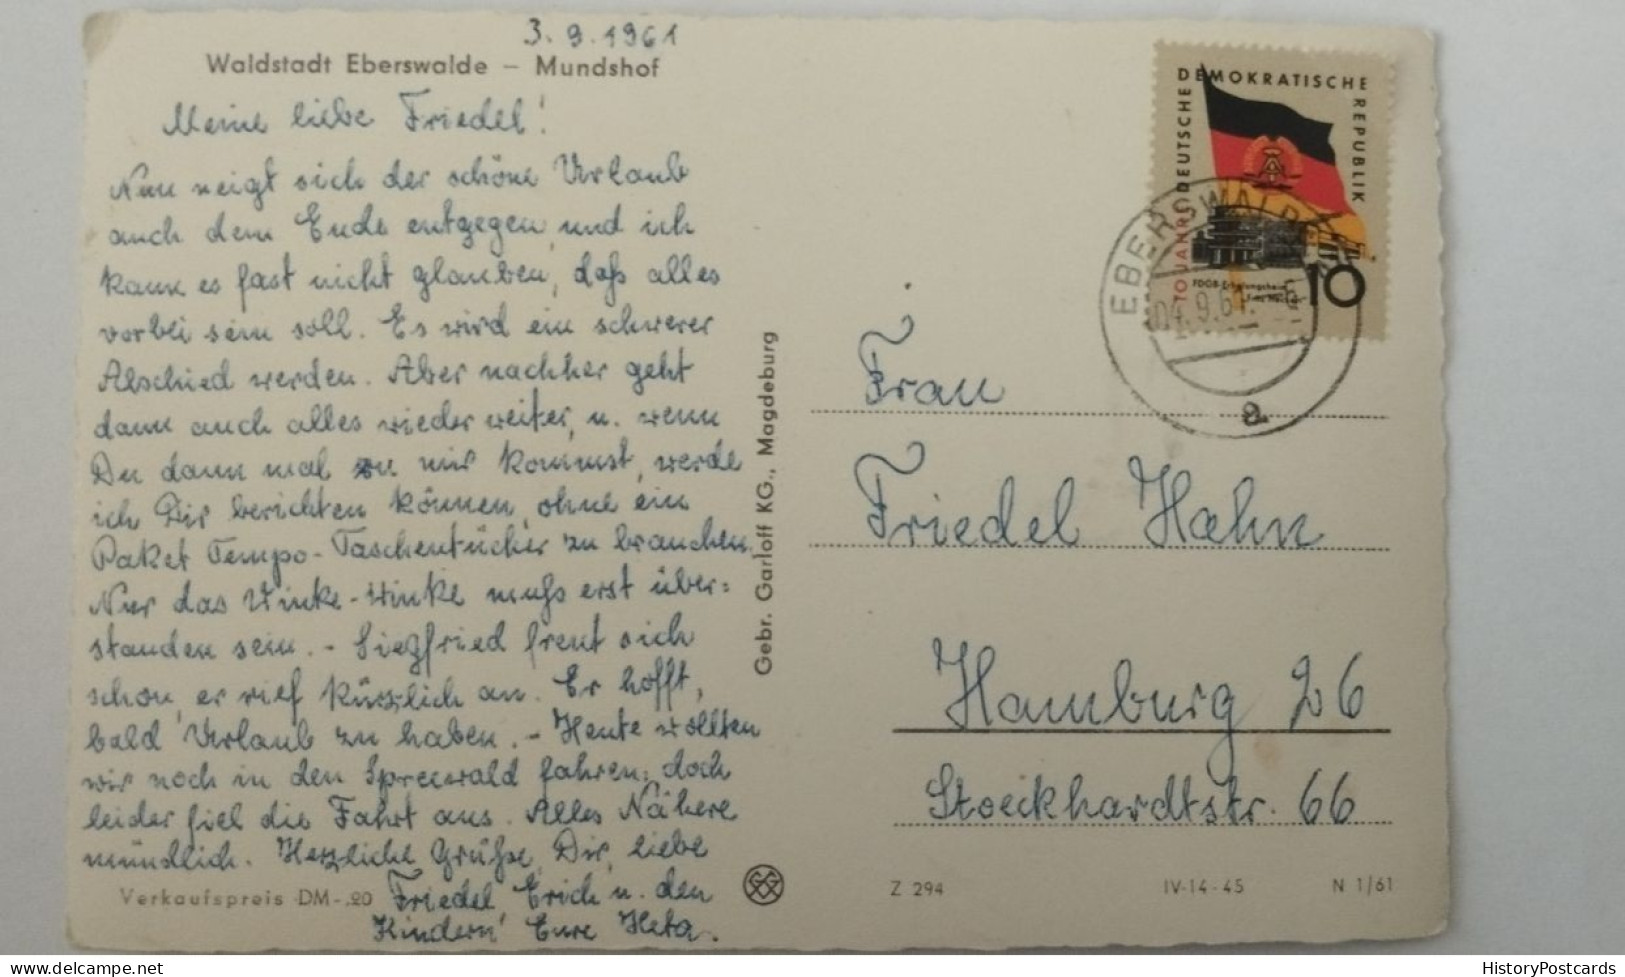 3.9.1961
Waldstadt Eberswalde – Mundshof
Meine liebe Friedel!
Nun neigt sich der schöne Urlaub
auch dem Ende entgegen, und ich
kann es fast nicht glauben, daß alles
vorbei sein soll. Es wird ein schwerer
Abschied werden. Aber nachher geht
dann auch alles wieder weiter, u. wenn
Du dann mal zu mir kommst, werde
ich Dir berichten können, ohne ein
Paket Tempo-Taschentücher zu brauchen.
Nur das Winke-winke muß erst über=
standen sein. - Siegfried freut sich
schon, er rief kürzlich an. Er hofft,
bald Urlaub zu haben. - Heute wollten
wir noch in den Spreewald fahren; doch
leider fiel die Fahrt aus. Alles Nähere
mündlich. Herzliche Grüße, Dir, liebe
Friedel, Erich u. den
Kindern! Eure Heta.
Verkaufspreis DM -.20
Gebr. Garloff KG., Magdeburg
10 JAHRE DEUTSCHE DEMOKRATISCHE REPUBLIK
FDGB-Erholungsheim
10
EBERSWALDE
04.9.61.
a
Frau
Friedel Hahn
Hamburg 26
Stoeckhardtstr. 66
Z 294
IV-14-45
N 1/61
HistoryPostcards
delcampe.net